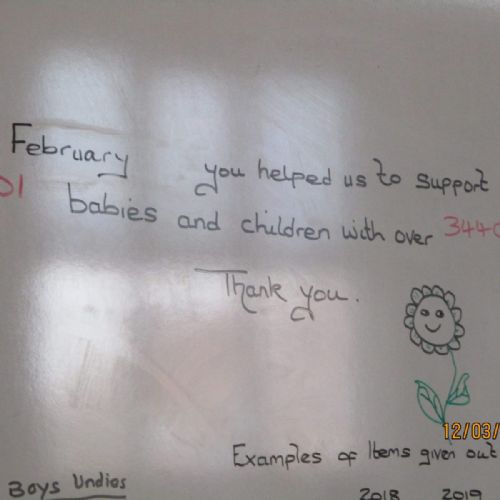 February you helped us to support
01 babies and children with over 3440
Thank you.
12/03/
Examples of Items given out
Boys Undies 2018 2019